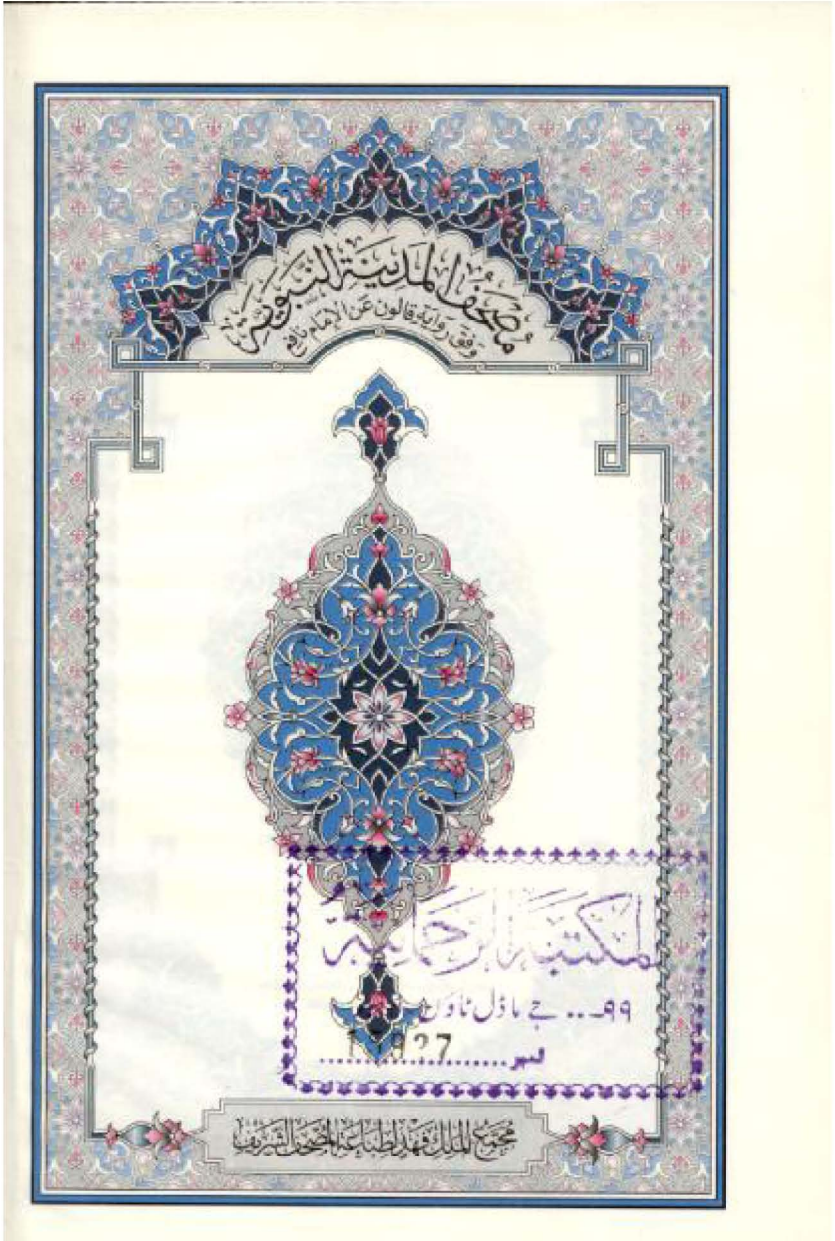 مُصْحَفُ الْمَدِينَةِ النَّبَوِيَّةِ
وَفْقَ رِوَايَةِ قَالُونَ عَنِ الْإِمَامِ نَافِعٍ
المكتبة الرحمانية
۹۹... جے ماڈل ٹاؤن
نمبر
مجمع الملك فهد لطباعة المصحف الشريف